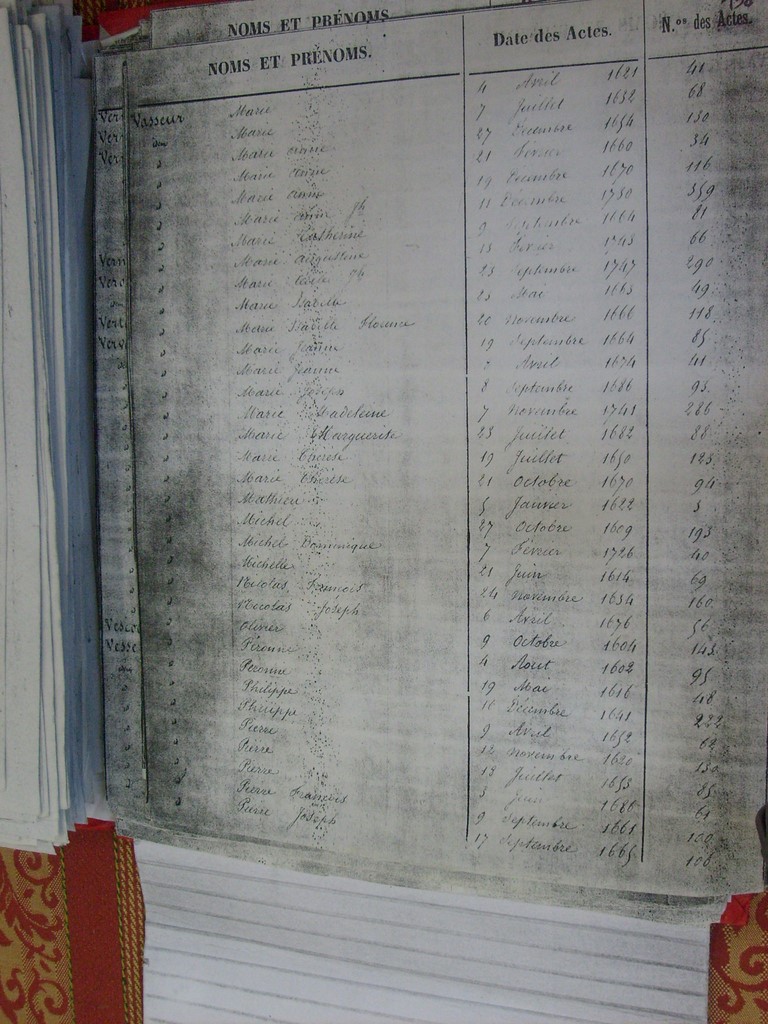 NOMS ET PRÉNOMS
NOMS ET PRÉNOMS. Date des Actes. N.os des Actes.
Vasseur Marie 4 Avril 1621 41
Marie 7 Juillet 1652 68
Marie anne 27 Décembre 1654 130
Marie anne 21 Février 1660 34
Marie anne 19 Décembre 1670 116
Marie anne jh 11 Décembre 1730 359
Marie Catherine 9 Septembre 1664 81
Marie augustine 13 Février 1743 66
Marie jh 23 Septembre 1747 290
Marie Isabelle 25 Mai 1663 49
Marie Isabelle Florence 20 Novembre 1666 118
Marie Jeanne 19 Septembre 1664 85
Marie Jeanne Avril 1674 41
Marie Joseph 8 Septembre 1686 93
Marie Madeleine 7 Novembre 1741 286
Marie Marguerite 23 Juillet 1682 88
Marie Thérèse 19 Juillet 1650 125
Marie Thérèse 21 Octobre 1670 94
Mathieu 5 Janvier 1622 3
Michel 27 Octobre 1609 193
Michel Dominique 7 Février 1726 40
Michelle 21 Juin 1614 69
Nicolas François 24 Novembre 1654 160
Nicolas Joseph 6 Avril 1676 56
Olivier 9 Octobre 1604 143
Péronne 4 Aout 1602 95
Péronne 19 Mai 1616 48
Philippe 16 Décembre 1641 222
Philippe 9 Avril 1652 62
Pierre 12 Novembre 1620 130
Pierre 13 Juillet 1653 85
Pierre 3 Juin 1686 61
Pierre François 9 Septembre 1661 100
Pierre Joseph 17 Septembre 1665 106